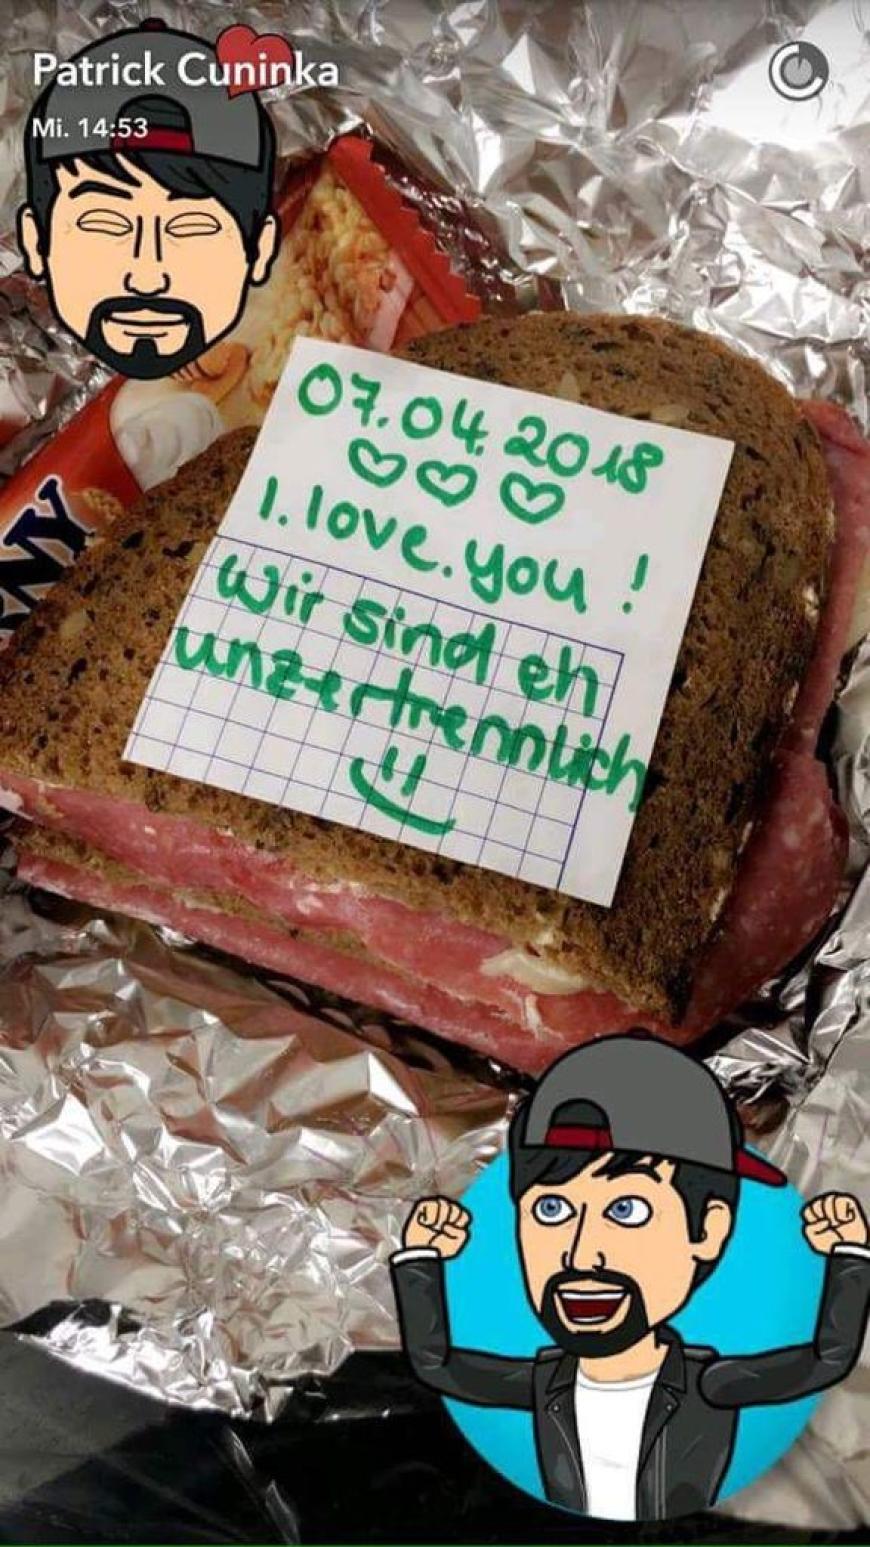 Patrick Cuninka
Mi. 14:53
07.04.2018
I. love. you !
wir sind eh
unzertrennlich
RNY